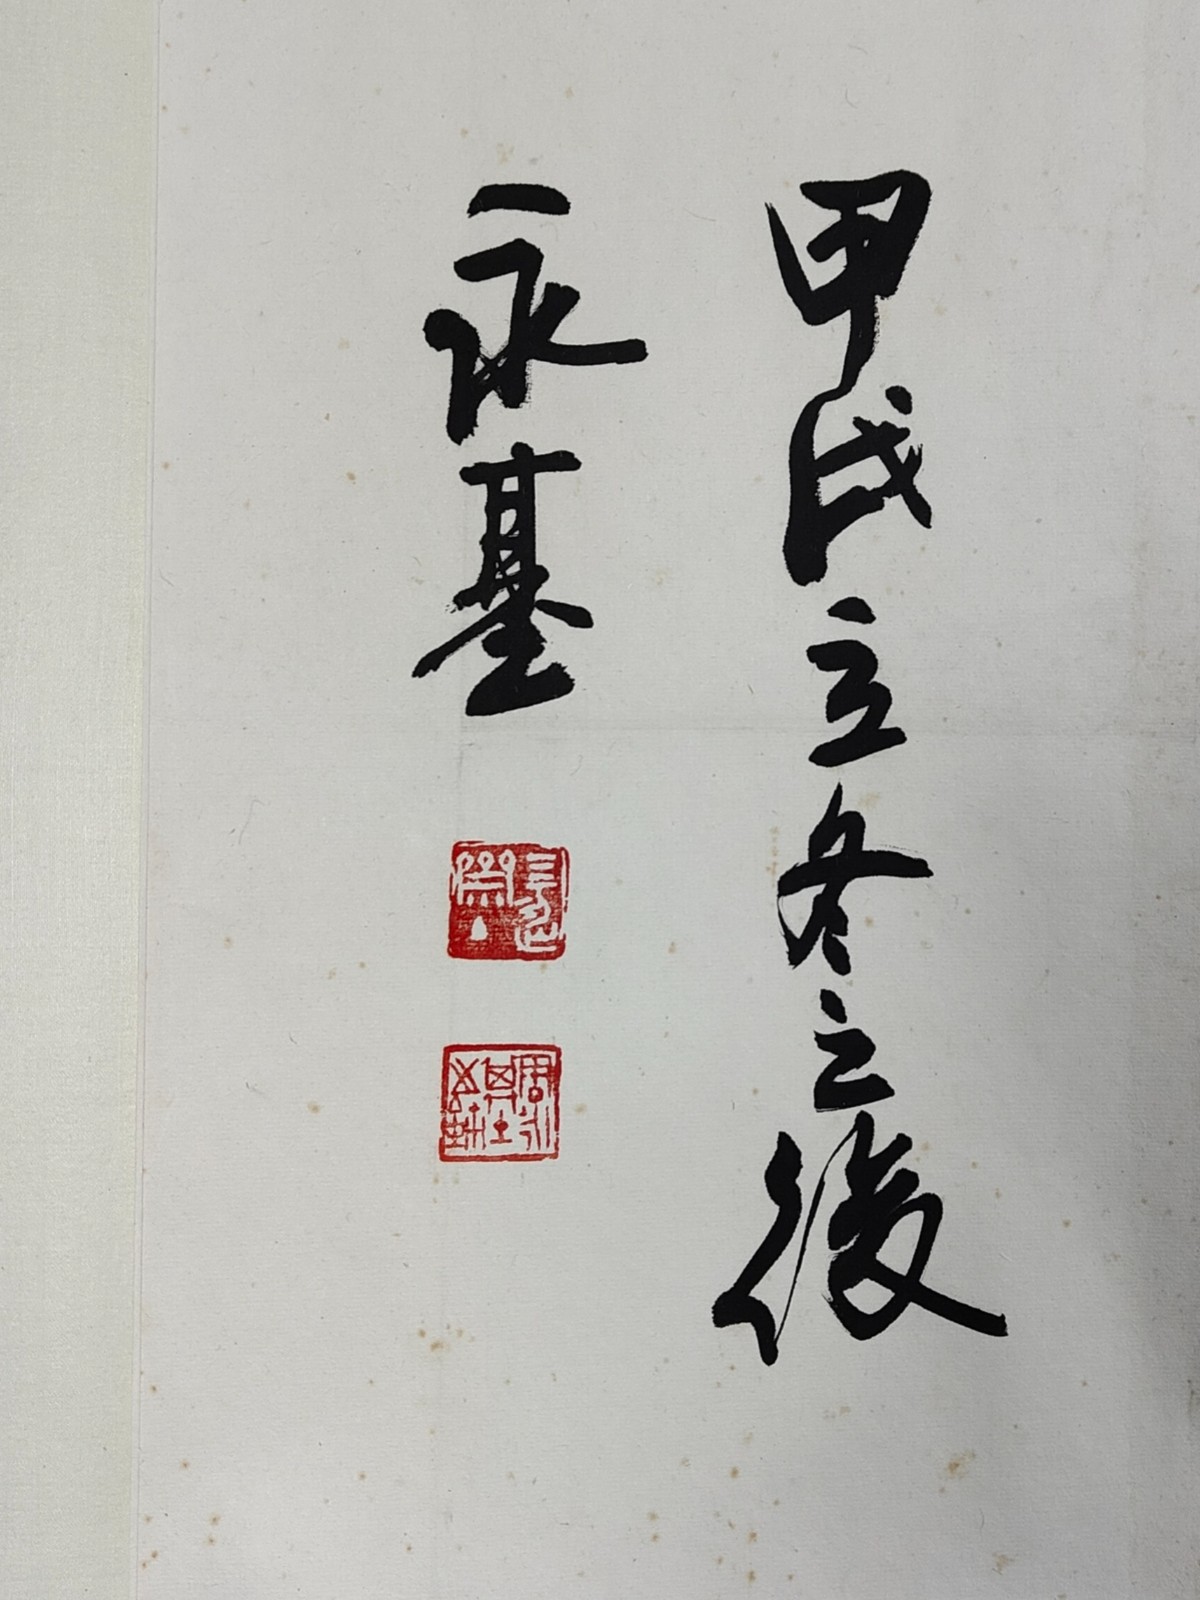 甲戌立冬之後
永基